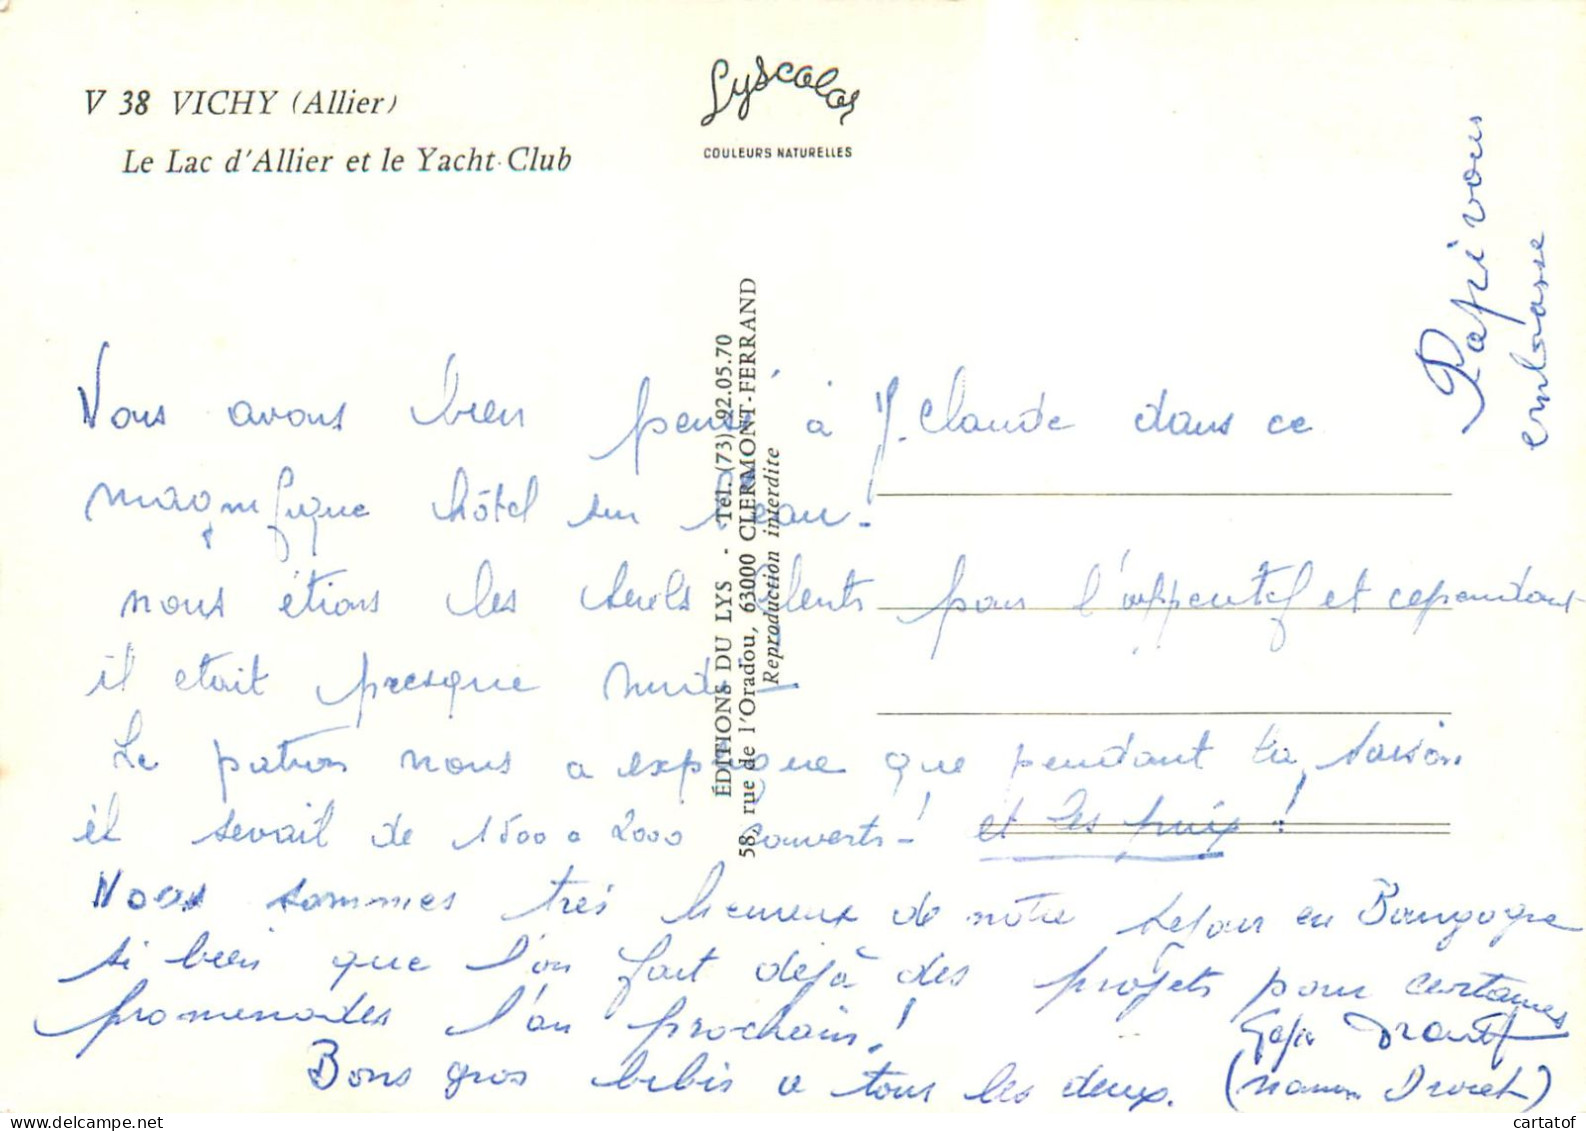 V 38 VICHY (Allier)
Le Lac d'Allier et le Yacht-Club
Lyscolor
COULEURS NATURELLES
ÉDITIONS DU LYS - Tél. (73) 92.05.70
58, rue de l'Oradou, 63000 CLERMONT-FERRAND
Reproduction interdite
Nous avons bien pensé à J. Claude dans ce
magnifique hôtel sur l'eau.
nous étions les seuls clients pour l'appentif et cependant
il etait presque midi
Le patron nous a expliqué que pendant la saison
il servait de 1500 a 2000 couverts ! et les prix !
Nous sommes très heureux de notre séjour en Bourgogne
si bien que l'on fait déjà des projets pour certaines
promenades l'an prochain !
Bons gros bibis a tous les deux.
Papi vous
embrasse